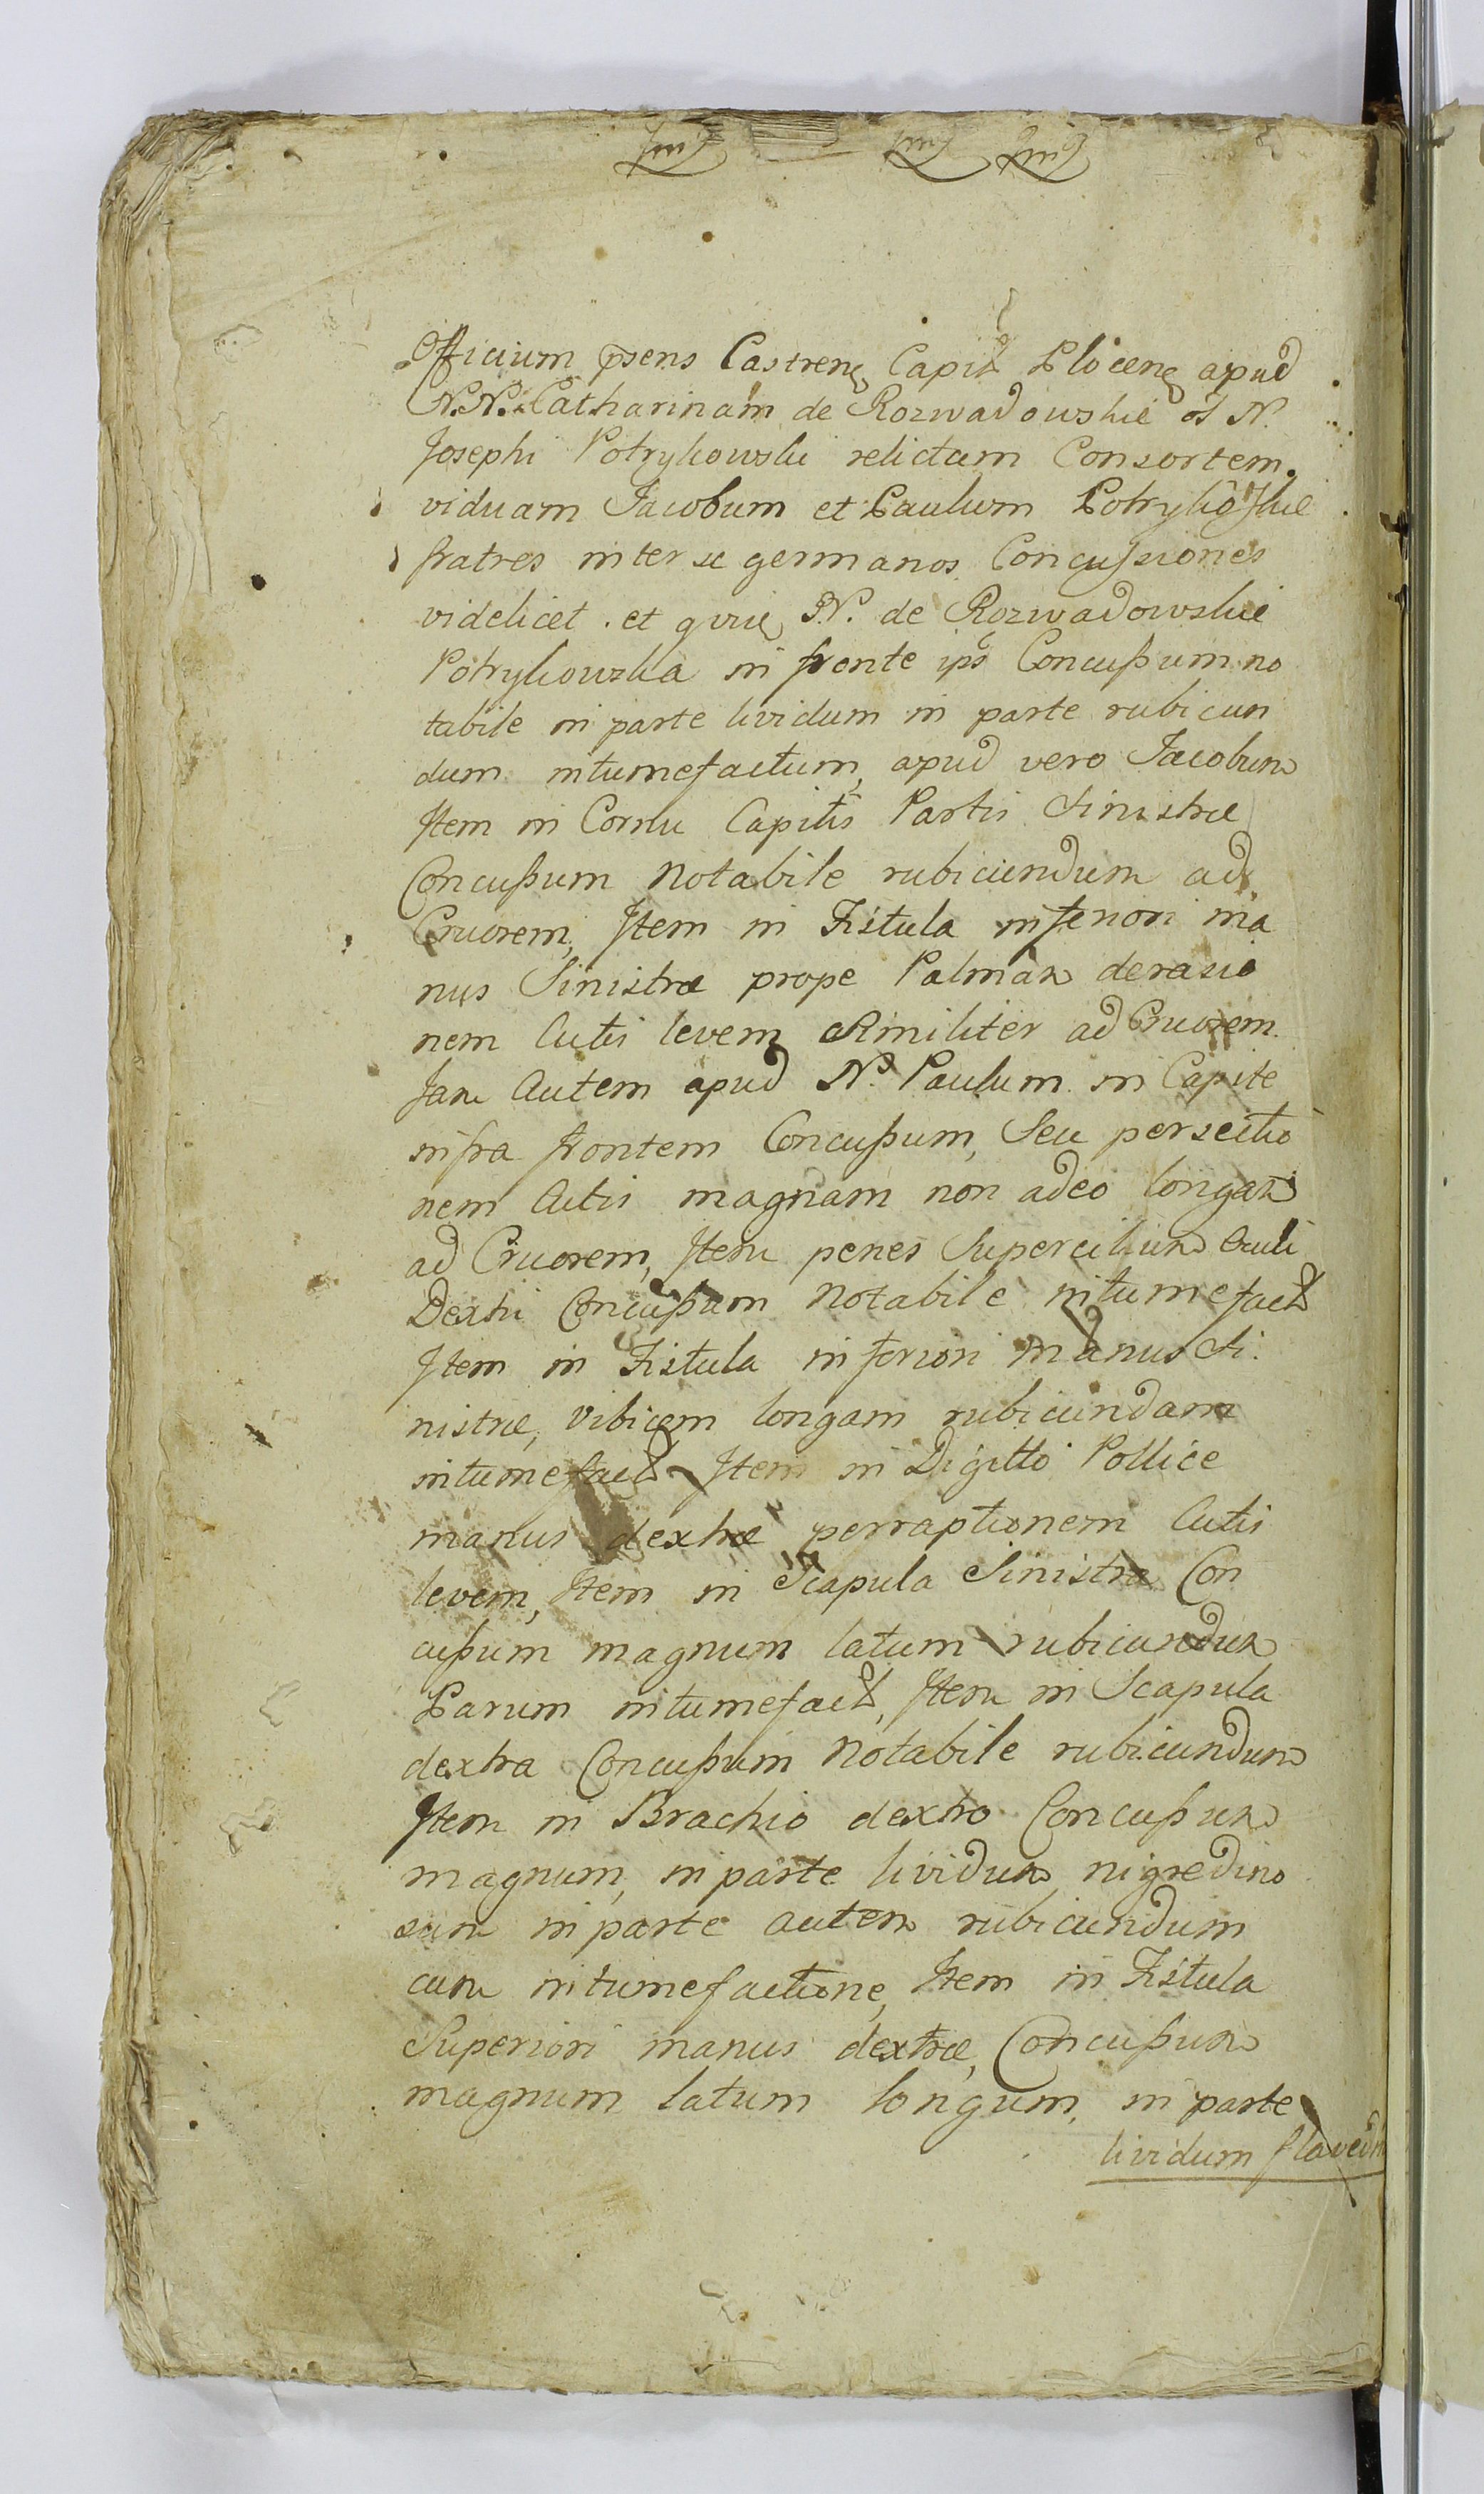 Officium psens Castren Capit Plocen apud
N.N. Catharinam de Rozwadowskie ol N.
Josephi Potrykowski relictam Consortem
viduam Jacobum et Paulum Potrykoskie
fratres inter se germanos Concussiones
videlicet et N. de Rozwadowskie
Potrykowska in fronte ips Concussum no
tabile in parte lividum in parte rubicun
dum intumefactum, apud vero Jacobum
Item in Cornu Capitis Partis Sinistræ
Concussum Notabile rubicundum ad
Cruorem, Item in Fistula inferiori ma
nus Sinistræ prope Palmam derasio
nem Cutis levem Similiter ad Cruorem.
Jam Autem apud N. Paulum in Capite
infra frontem Concussum, Seu persectio
nem Cutis magnam non adeo longam
ad Cruorem, Item penes Supercilium Oculi
Dextri Concussum Notabile intumefact
Item in Fistula inferiori manus Si
nistræ, Vibicem longam rubicundam
intumefact Item in Digitto Pollice
manus dextræ perraptionem Cutis
levem, Item in Scapula Sinistra Con
cussum magnum latum rubicundum
Parum intumefact, Item in Scapula
dextra Concussum Notabile rubicundum
Item in Brachio dextro Concussum
magnum, in parte lividum nigredino
sum in parte autem rubicundum
cum intumefactione, Item in Fistula
Superiori manus dextræ, Concussum
magnum latum longum, in parte
lividum flavedi